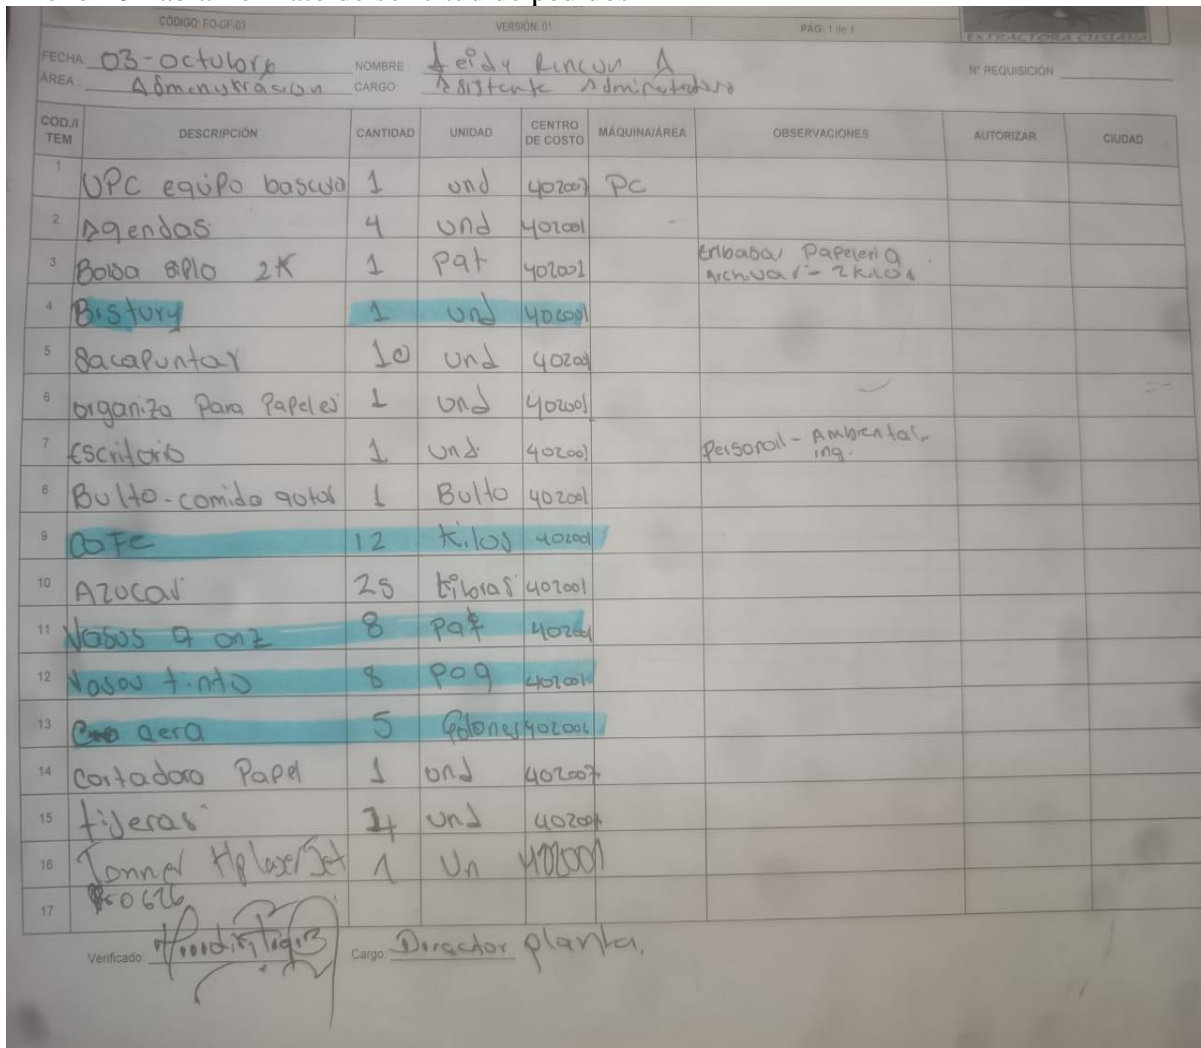 CÓDIGO: FO-GF-03 VERSIÓN: 01 PÁG: 1 de 1
EXTRACTORA CUSIANA
FECHA: 03-octubre NOMBRE Leidy Rincon A Nº REQUISICIÓN
ÁREA: Administracion CARGO: Asistente Administrativo
COD./I TEM DESCRIPCIÓN CANTIDAD UNIDAD CENTRO DE COSTO MÁQUINA/ÁREA OBSERVACIONES AUTORIZAR CIUDAD
1 UPC equipo bascula 1 und 402007 PC
2 Agendas 4 und 402001
3 Bolsa 2K 1 Pat 402001 Enbasar Papeleria Archivar - 2 Kilos
4 Bistury 1 und 402001
5 Sacapuntar 10 und 402001
6 organiza Para Papeles 1 und 402001
7 Escritorio 1 und. 402001 Personal - Ambiental. ing.
8 Bulto - comida gatos 1 Bulto 402001
9 Cafe 12 kilos 402001
10 Azucar 25 402001
11 Vasos 9 onz 8 paq 402001
12 Vasos tinto 8 paq 402001
13 cera 5 Galones 402001
14 Cortadora Papel 1 und 402007
15 tijeras und
16 Tonner Hp laserJet 1 Un 402001
17
Verificado: Cargo: Director planta.